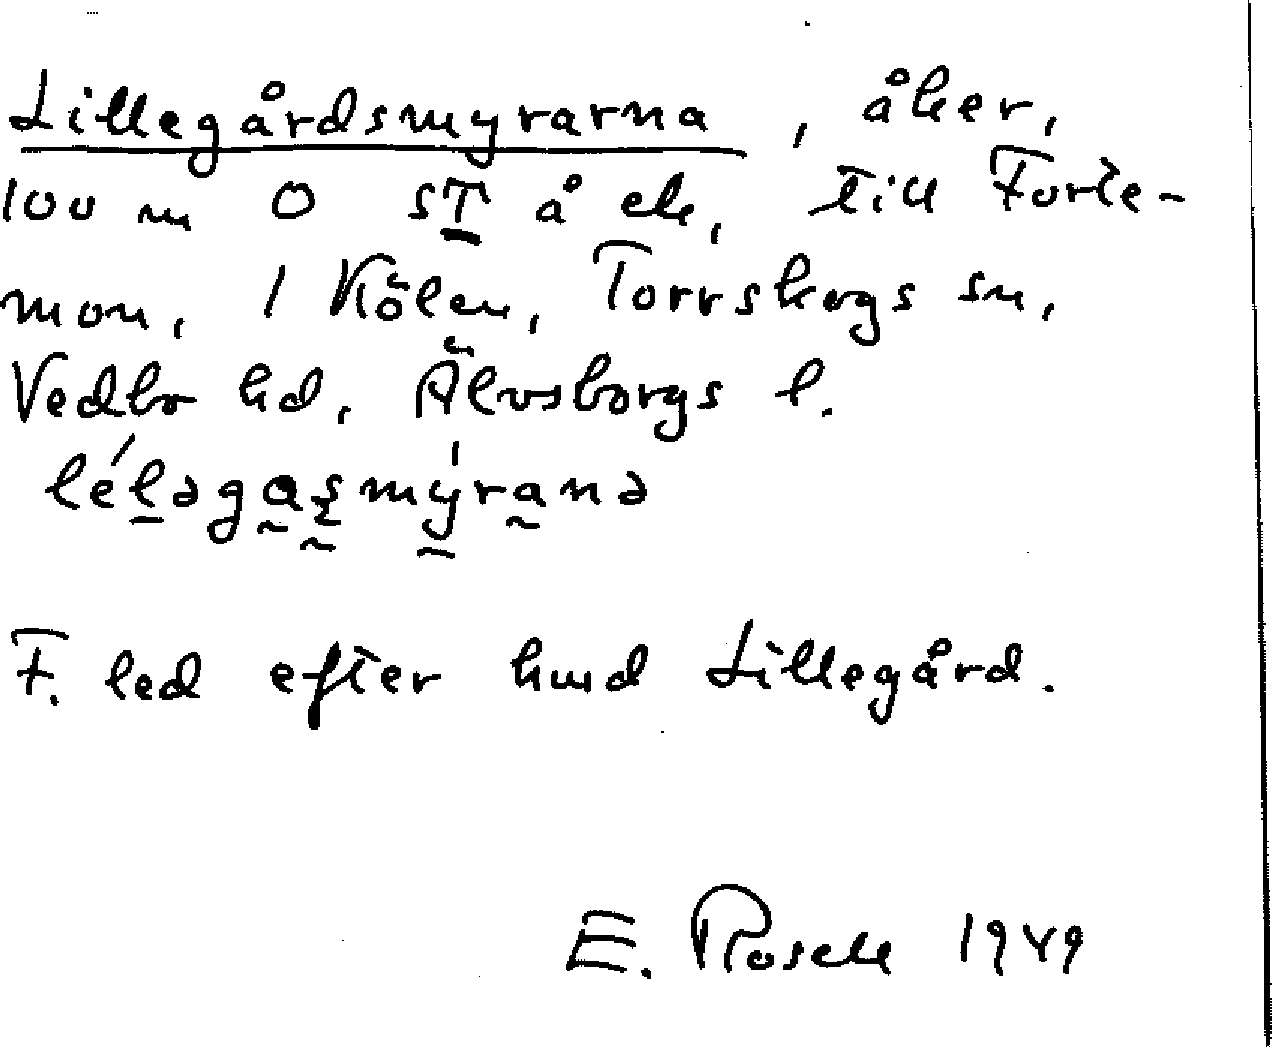 Lillegårdsmyrarna, åker,
100 m O ST å ek, till Furte-
mon, 1 Kölen, Torrskogs sn,
Vedbo hd, Älvsborgs l.
léləgaṣmýranə
F. led efter hmd Lillegård.
E. Rosell 1949